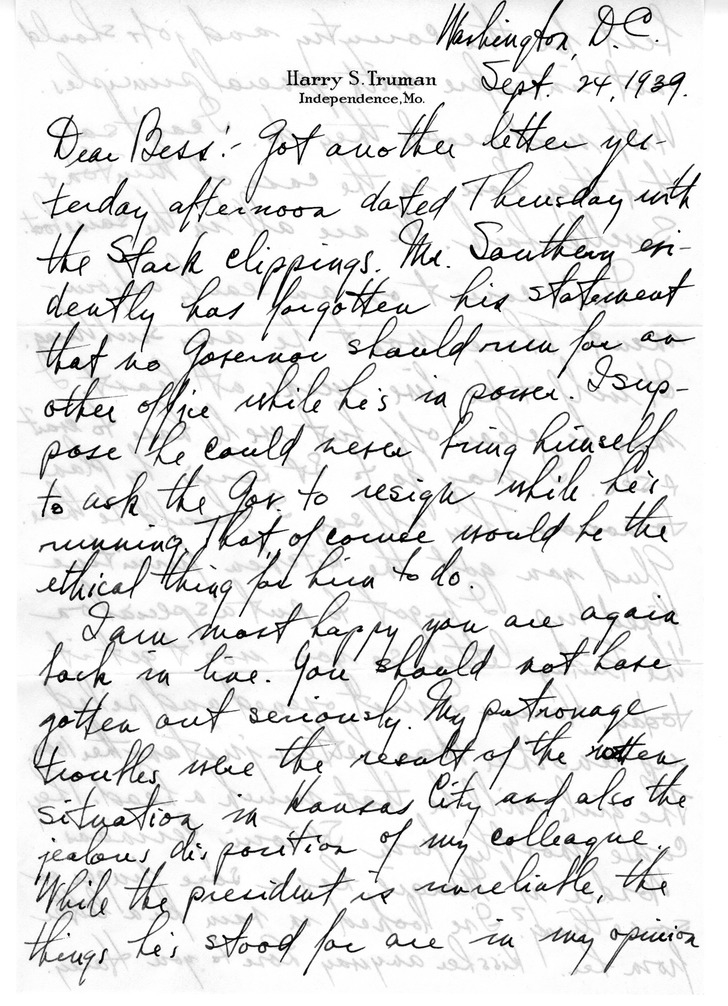 Washington, D.C.
Harry S. Truman
Independence, Mo.
Sept. 24, 1939.
Dear Bess:- Got another letter yes-
terday afternoon dated Thursday with
the Stark clippings. Mr. Southern evi-
dently has forgotten his statement
that no Governor should run for an
other office while he's in power. I sup-
pose he could never bring himself
to ask the Gov. to resign while he's
running. That, of course would be the
ethical thing for him to do.
I am most happy you are again
back in line. You should not have
gotten out seriously. My patronage
troubles were the result of the rotten
situation in Kansas City and also the
jealous disposition of my colleague.
While the president is unreliable, the
things he's stood for are in my opinion